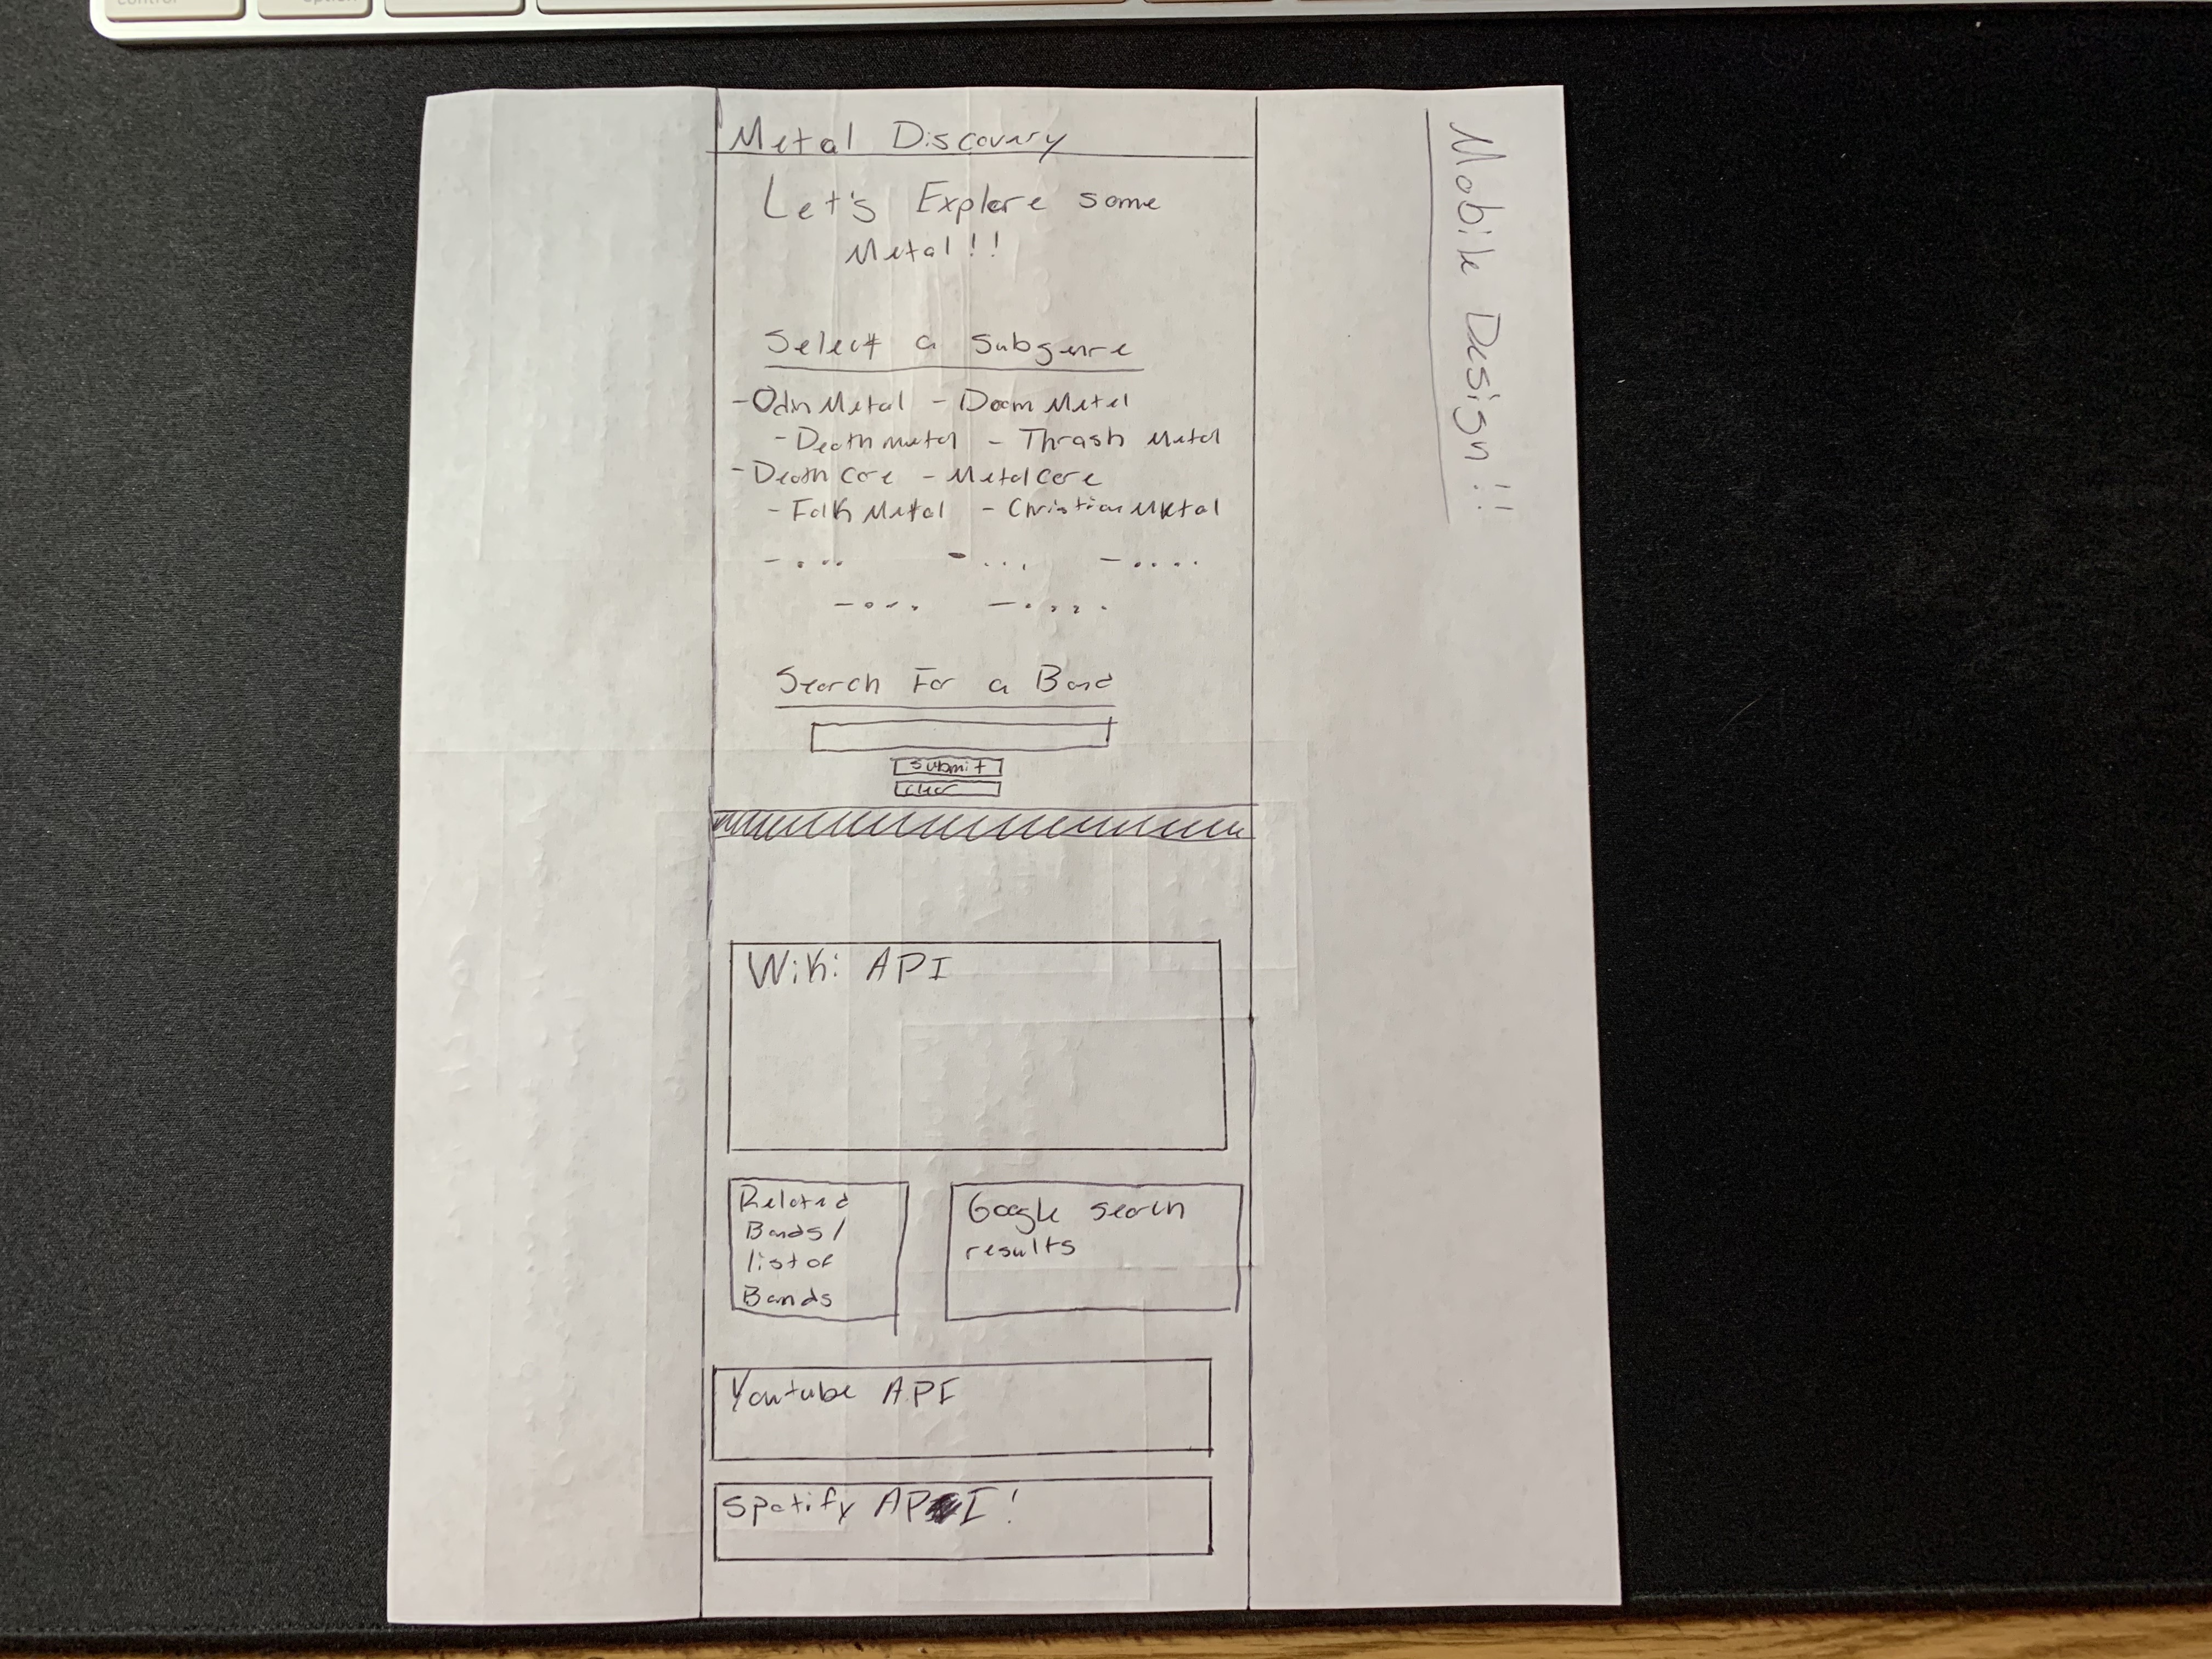 control
option
Metal Discovery
Let's Explore some
Metal!!
Select a Subgenre
- Odin Metal - Doom Metal
- Death metal - Thrash Metal
- Death Core - Metal Core
- Folk Metal - Christian Metal
- .... - ... - ....
- .... - ....
Search For a Band
Submit
Clear
Wiki API
Related
Bands/
list of
Bands
Google search
results
Youtube API
Spotify API!
Mobile Design!!